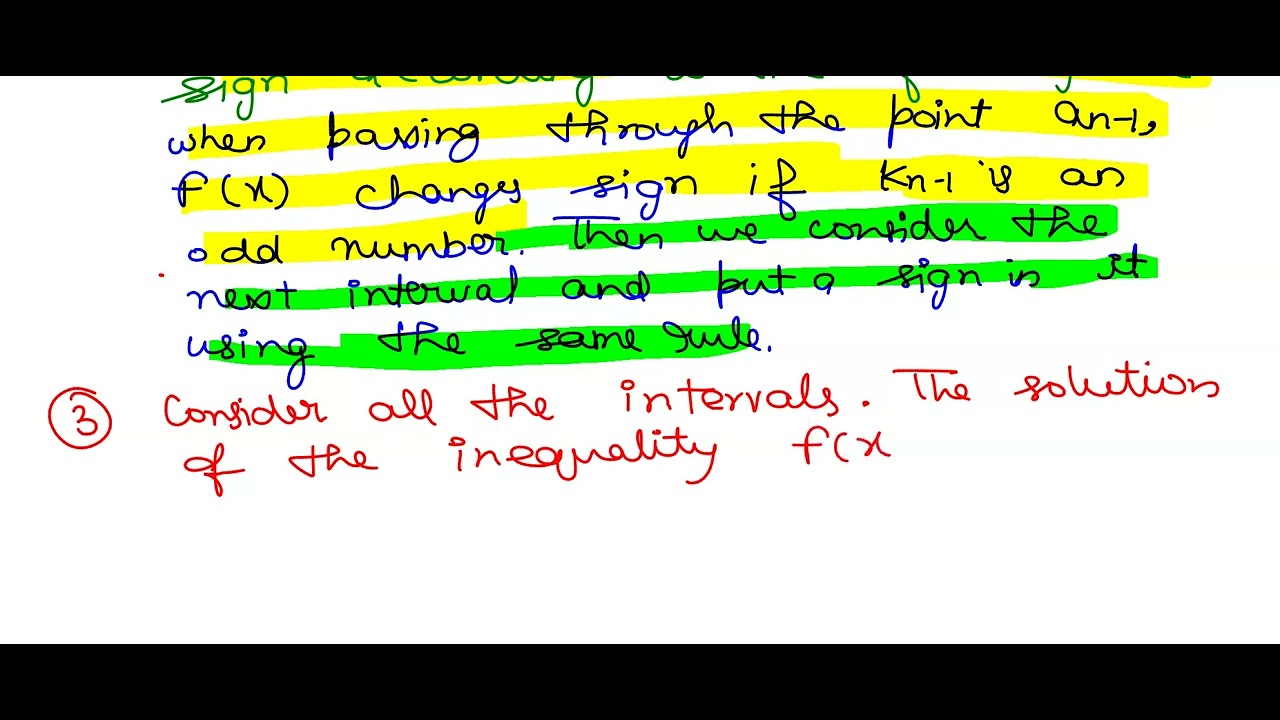 sign
when passing through the point an-1,
f(x) changes sign if kn-1 is an
odd number. Then we consider the
next interval and put a sign in it
using the same rule.
③ Consider all the intervals. The solution
of the inequality f(x